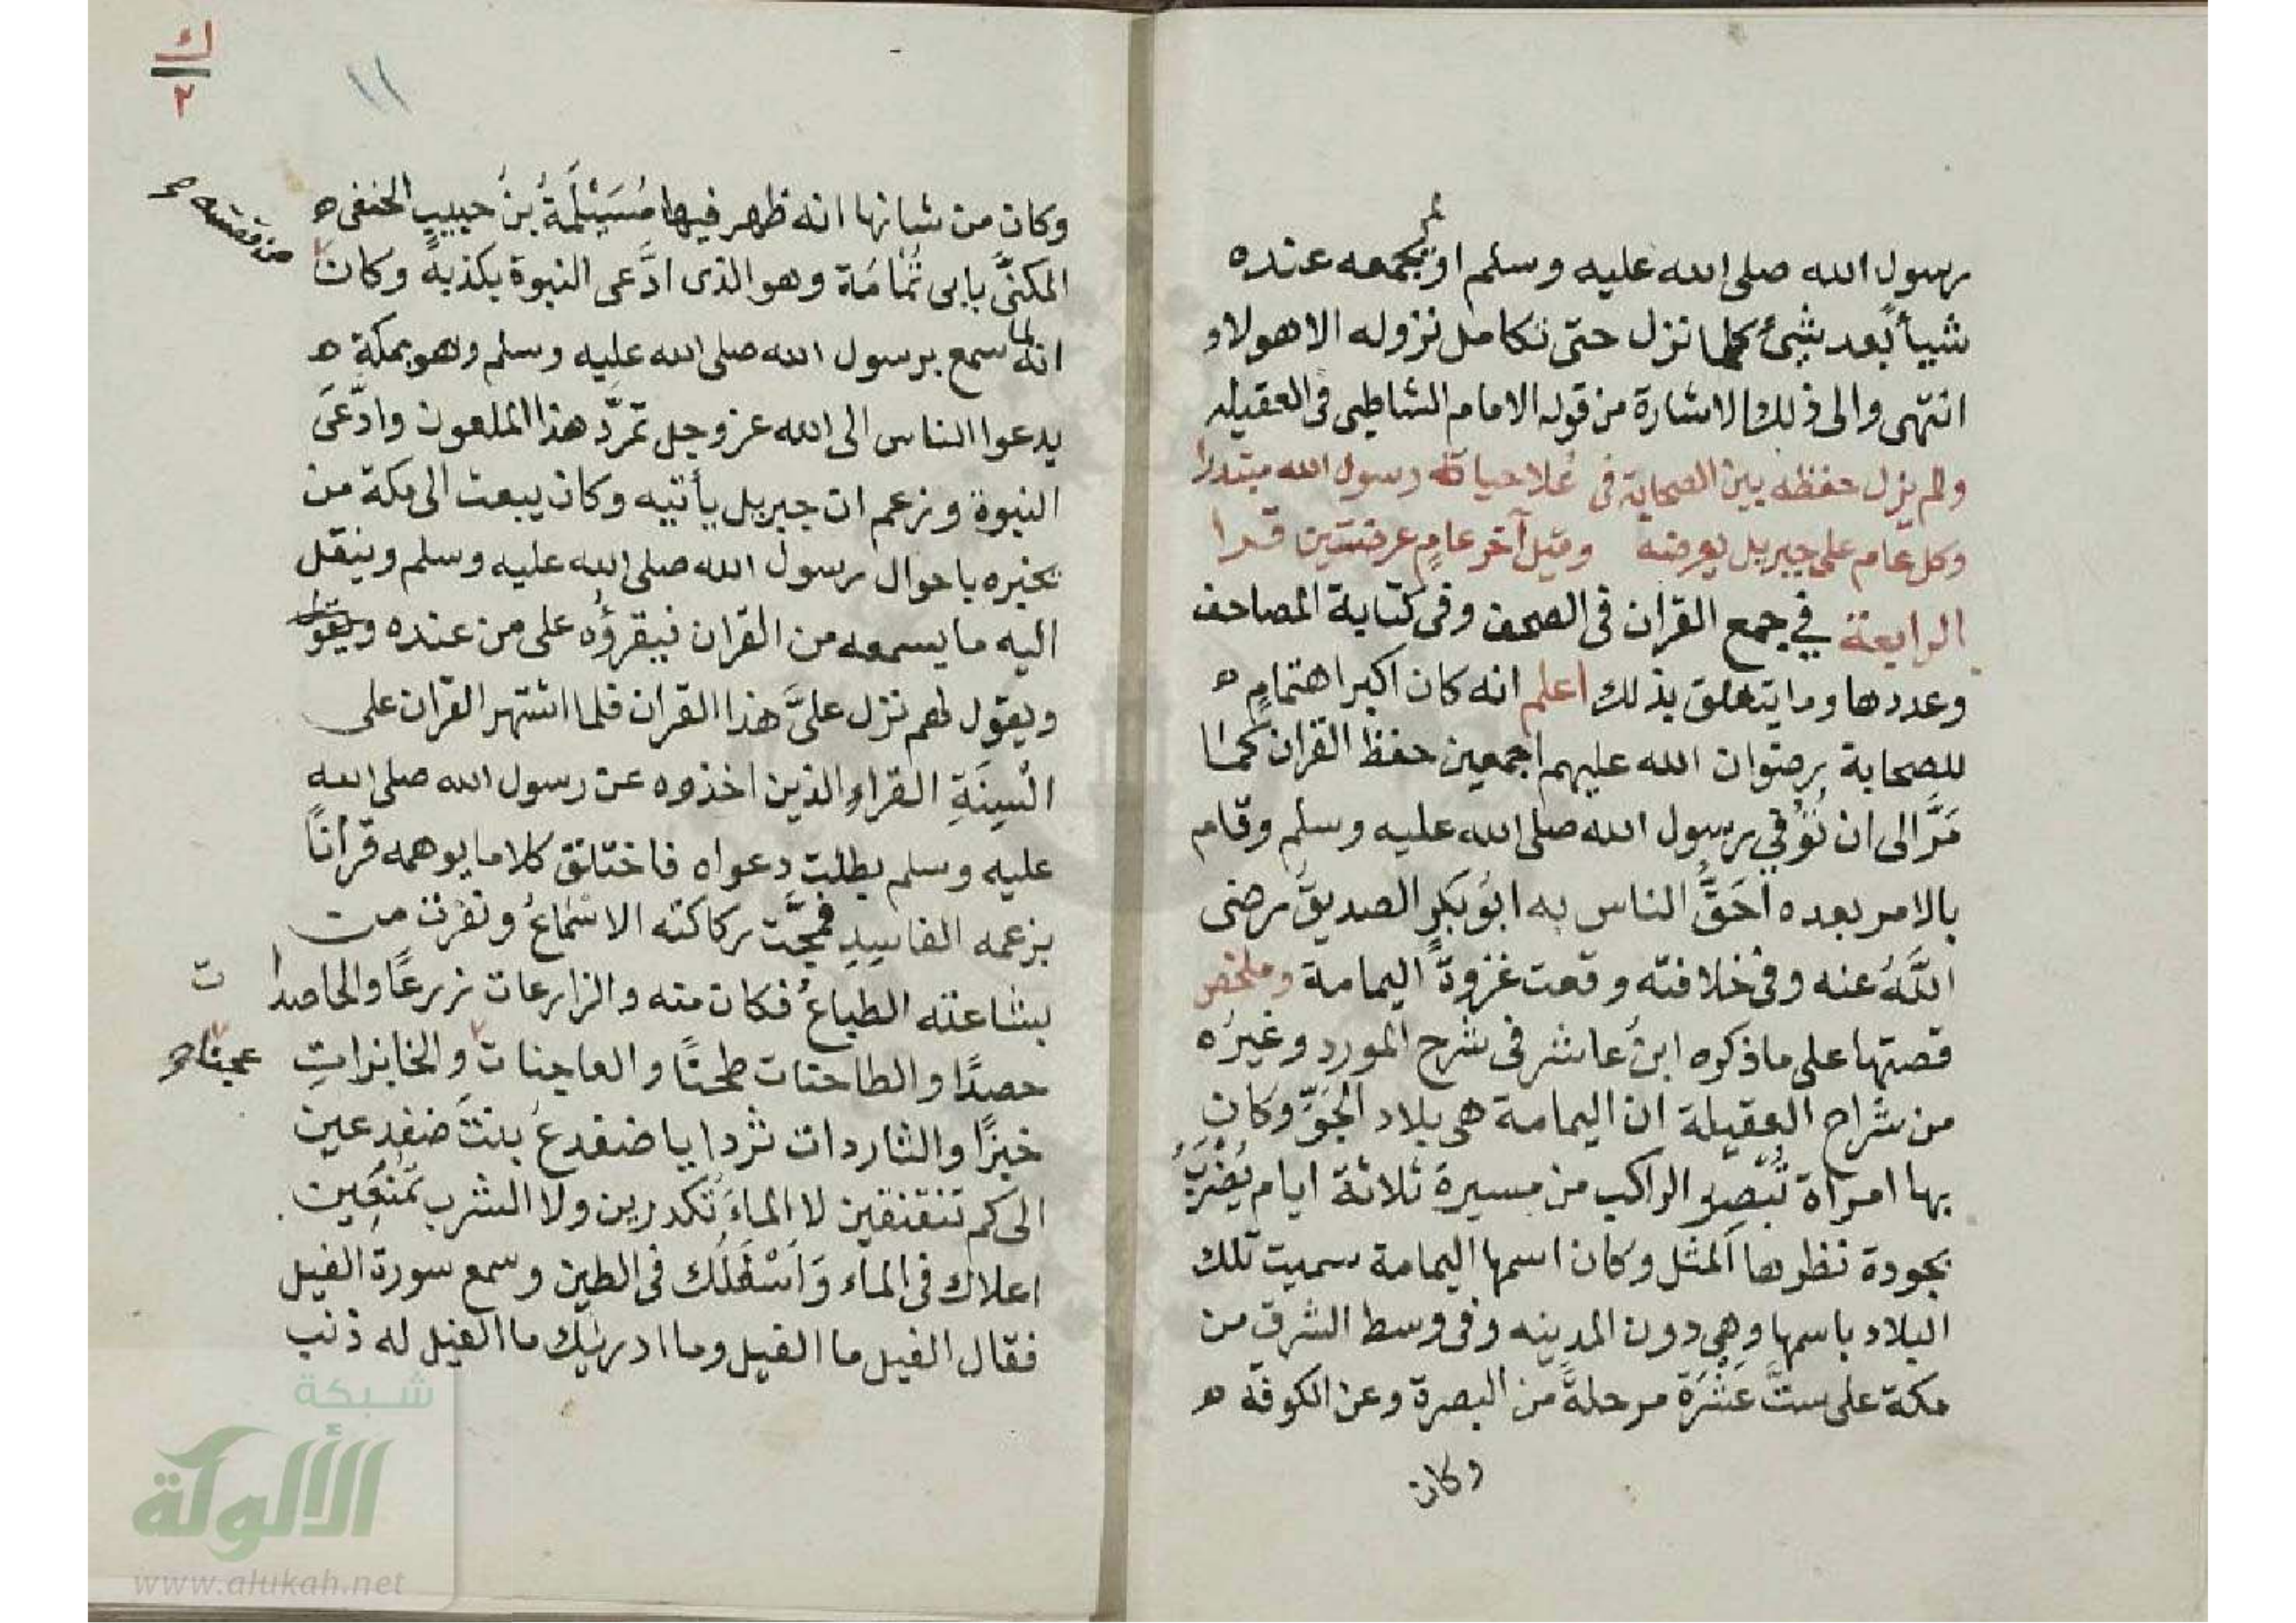 رسول الله صلى الله عليه وسلم او يجمعه عنده
شيأ بعد شئ كلما نزل حتى تكامل نزوله الا هولاو
انتهى والى ذلك الاشارة من قول الامام الشاطبى فى العقيله
ولم يزل حفظه بين الصحابة فى علا حياة رسول الله مبتدرا
وكل عام على جبريل يعرضه وقيل آخر عام عرضتين قرا
الرابعة في جمع القران فى الصحف وفى كتابة المصاحف
وعددها وما يتعلق بذلك اعلم انه كان اكبر اهتمامٍ ه
للصحابة رضوان الله عليهم اجمعين حفظ القران كما
مَرَّ الى ان تُوُفي رسول الله صلى الله عليه وسلم وقام
بالامر بعده اَحَقُّ الناس به ابو بكرٍ الصديقُ رضى
اللَّهُ عنه وفى خلافته وقعت غزوةُ اليمامة وملخص
قصتها على ما ذكره ابنُ عاشر فى شرح المورد وغيرُه
من شراح العقيلة ان اليمامة هى بلاد الجَوِّ وكان
بها امرأة تُبْصِر الراكب من مسيرة ثلاثة ايام يُضْرَبُ
بجودة نظرها المثل وكان اسمها اليمامة سميت تلك
البلاد باسمها وهي دون المدينه وفى وسط الشرق من
مكة على ستَّ عَشْرَةَ مرحلةً من البصرة وعن الكوفة ه
وكان
ك
٢
١١
وكان من شانها انه ظهر فيها مُسَيْلَمَةُ بنُ حبيبٍ الحنفى ه
المكنَّى بابى ثُمَامَة وهو الذى ادَّعى النبوة بكذبه وكان
من قصته صح
انه لما سمع برسول الله صلى الله عليه وسلم وهو بمكة ه
يدعوا الناس الى الله عز وجل تمرّد هذا الملعون وادّعَى
النبوة وزعم ان جبريل يأتيه وكان يبعث الى مكة من
يخبره باحوال رسول الله صلى الله عليه وسلم وينقل
اليه ما يسمعه من القران فيقرؤُه على من عنده ويقول
ويقول لهم نزل علىَّ هذا القران فلما اشتهر القران على
السِنَةِ القراء الذين اخذوه عن رسول الله صلى الله
عليه وسلم بطلت دعواه فاختلق كلاما يوهمه قرأنًا
بزعمه الفاسِدِ فمجَّت ركاكته الاسماعُ ونفرت من
بشاعته الطباعُ فكان منه والزارعات زرعًا والحاصدا
ت
حصدًا والطاحنات طحنًا والعاجنات والخابزاتِ
عجنا صح
خبزًا والثاردات ثردا يا ضفدعُ بنتَ ضفدعين
الى كم تنقنقين لا الماءَ تُكدرين ولا الشرب تَمْنَعِين
اعلاك فى الماء وَاَسْفَلُك فى الطين وسمع سورة الفيل
فقال الفيل ما الفيل وما ادريك ما الفيل له ذنب
شبكة
الألوكة
www.alukah.net